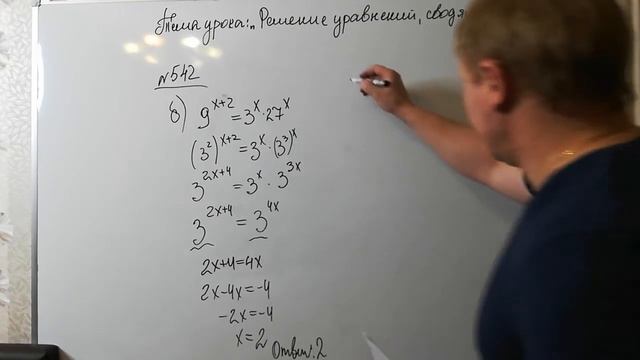 Тема урока: „Решение уравнений, сводя
№542
в) 9^(x+2) = 3^x · 27^x
(3^2)^(x+2) = 3^x · (3^3)^x
3^(2x+4) = 3^x · 3^(3x)
3^(2x+4) = 3^(4x)
2x+4=4x
2x-4x=-4
-2x=-4
x=2
Ответ: 2